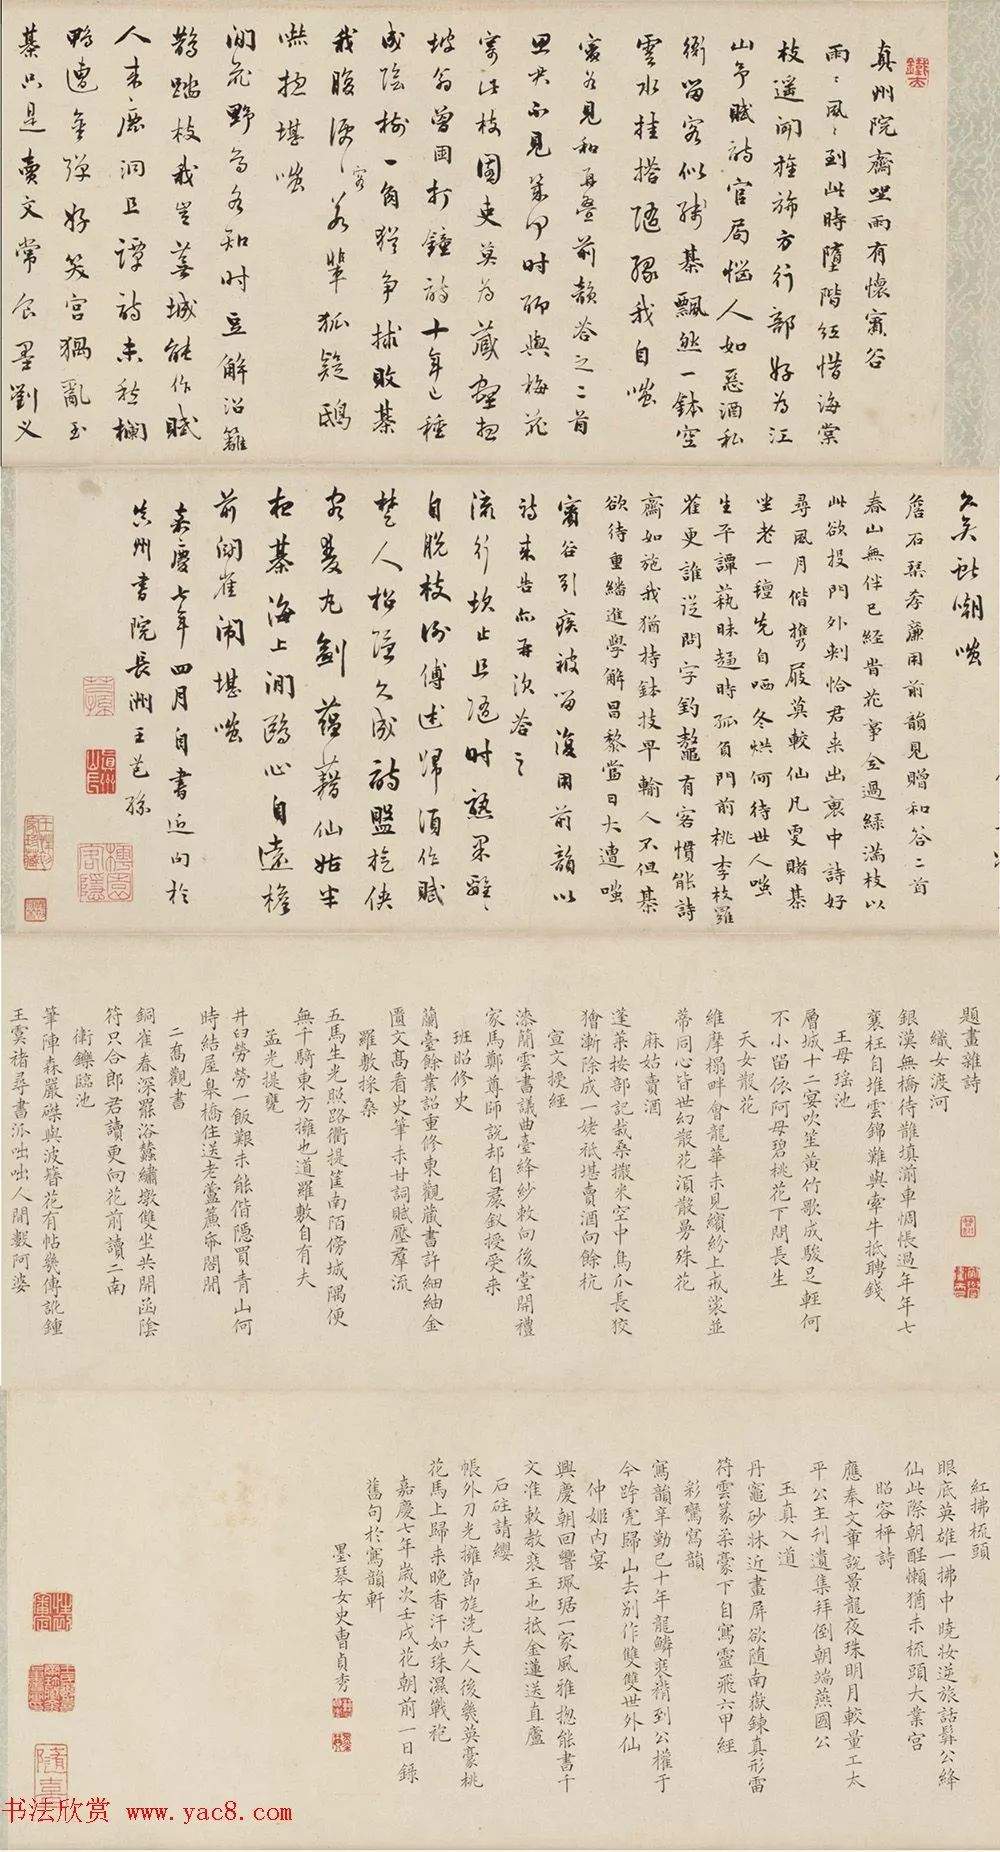 真州院齋坐雨有懷賓谷
雨〻風〻到此時墮階紅惜海棠
枝遥聞旌旆方行部好為江
山争賦詩官局惱人如惡酒私
衙留客似殘棊飄然一鉢空
雲水挂搭隨緣我自嗤
賓谷見和再疊前韻答之二首
思君不見笑何時聊與梅花
寄此枝園吏莫為藏壑
坡翁曾因打鐘詩十年已種
成陰樹一角猶争捄敗棊
我腹源容若輩狐疑鴟
嚇堪嗤
澗花野鳥各知时豆解沿籬
鵲踏枝我豈蕪城能作賦
人来鹿洞且譚詩未愁欄
鴨遭金彈好笑宮猧亂玉
棊只是賣文常食墨劉义
久矣此嘲嗤
詹石琴孝廉用前韻見贈和答二首
春山無伴已經旹花事全過緑滿枝以
此欲投門外刺恰君来出裏中詩好
尋風月偕攜屐莫較仙凡更賭棊
坐老一氊先自哂冬烘何待世人嗤
生平譚蓺昧趨時孤負門前桃李枝羅
雀更誰從問字釣鼇有客慣能詩
齋如施我猶持鉢技早輸人不但棊
欲待重繙進學解昌黎當日大遭嗤
賓谷引疾被留復用前韻以
詩来告亦再次答之
流行坎止且隨时熟果離〻
自脱枝何傅述歸須作賦
楚人招隱久成詩盤旋俠
客雙丸劍蘊藉仙姑半
夜棊海上閒鷗心自遠檐
前鬭雀鬧堪嗤
嘉慶七年四月自書近句於
真州書院長洲王芑孫
題畫雜詩
織女渡河
銀漢無橋待鵲填湔車惆悵過年年七
襄枉自堆雲錦難與牽牛抵聘錢
王母瑤池
層城十二宴吹笙黄竹歌成駿足輕何
不小留依阿母碧桃花下問長生
天女散花
維摩榻畔會龍華未見繽紛上戒裟並
蒂同心皆世幻散花須散曼殊花
麻姑賣酒
蓬萊按部記栽桑撒米空中鳥爪長狡
獪漸除成一姥祇堪賣酒向餘杭
宣文授經
漆簡雲書議曲臺絳紗敕向後堂開禮
家馬鄭尊師說却自裙釵授受来
班昭修史
蘭臺餘業詔重修東觀藏書許細紬金
匱文髙看史筆未甘詞賦壓羣流
羅敷採桑
五馬生光照路衢提筐南陌傍城隅便
無千騎東方擁也道羅敷自有夫
孟光提甕
井臼勞勞一飯艱未能偕隱買青山何
時結屋皋橋住送老蘆簾帘閤閒
二喬觀書
銅雀春深罷浴蠶繡墩雙坐共開函陰
符只合郎君讀更向花前讀二南
衛鑠臨池
筆陣森嚴磔與波簪花有帖幾傳訛鍾
王雲褚尋書派咄咄人間數阿婆
紅拂梳頭
眼底英雄一拂中曉妝逆旅話髯公絳
仙此際朝酲懶猶未梳頭大業宮
昭容秤詩
應奉文章說景龍夜珠明月較量工太
平公主刊遺集拜倒朝端燕國公
玉真入道
丹竈砂牀近畫屏欲随南嶽鍊真形雷
符雲篆柔豪下自寫靈飛六甲經
彩鸞寫韻
寫韻辛勤已十年龍鱗裝精到公權于
今跨虎歸山去別作雙雙世外仙
仲姬内宴
興慶朝回響珮琚一家風雅揔能書千
文准敕教裝玉也抵金蓮送直廬
石砫請纓
帳外刀光擁節旄洗夫人後幾英豪桃
花馬上歸来晚香汗如珠濕戰袍
嘉慶七年歲次壬戌花朝前一日錄
舊句於寫韻軒
墨琴女史曹貞秀
书法欣赏 www.yac8.com